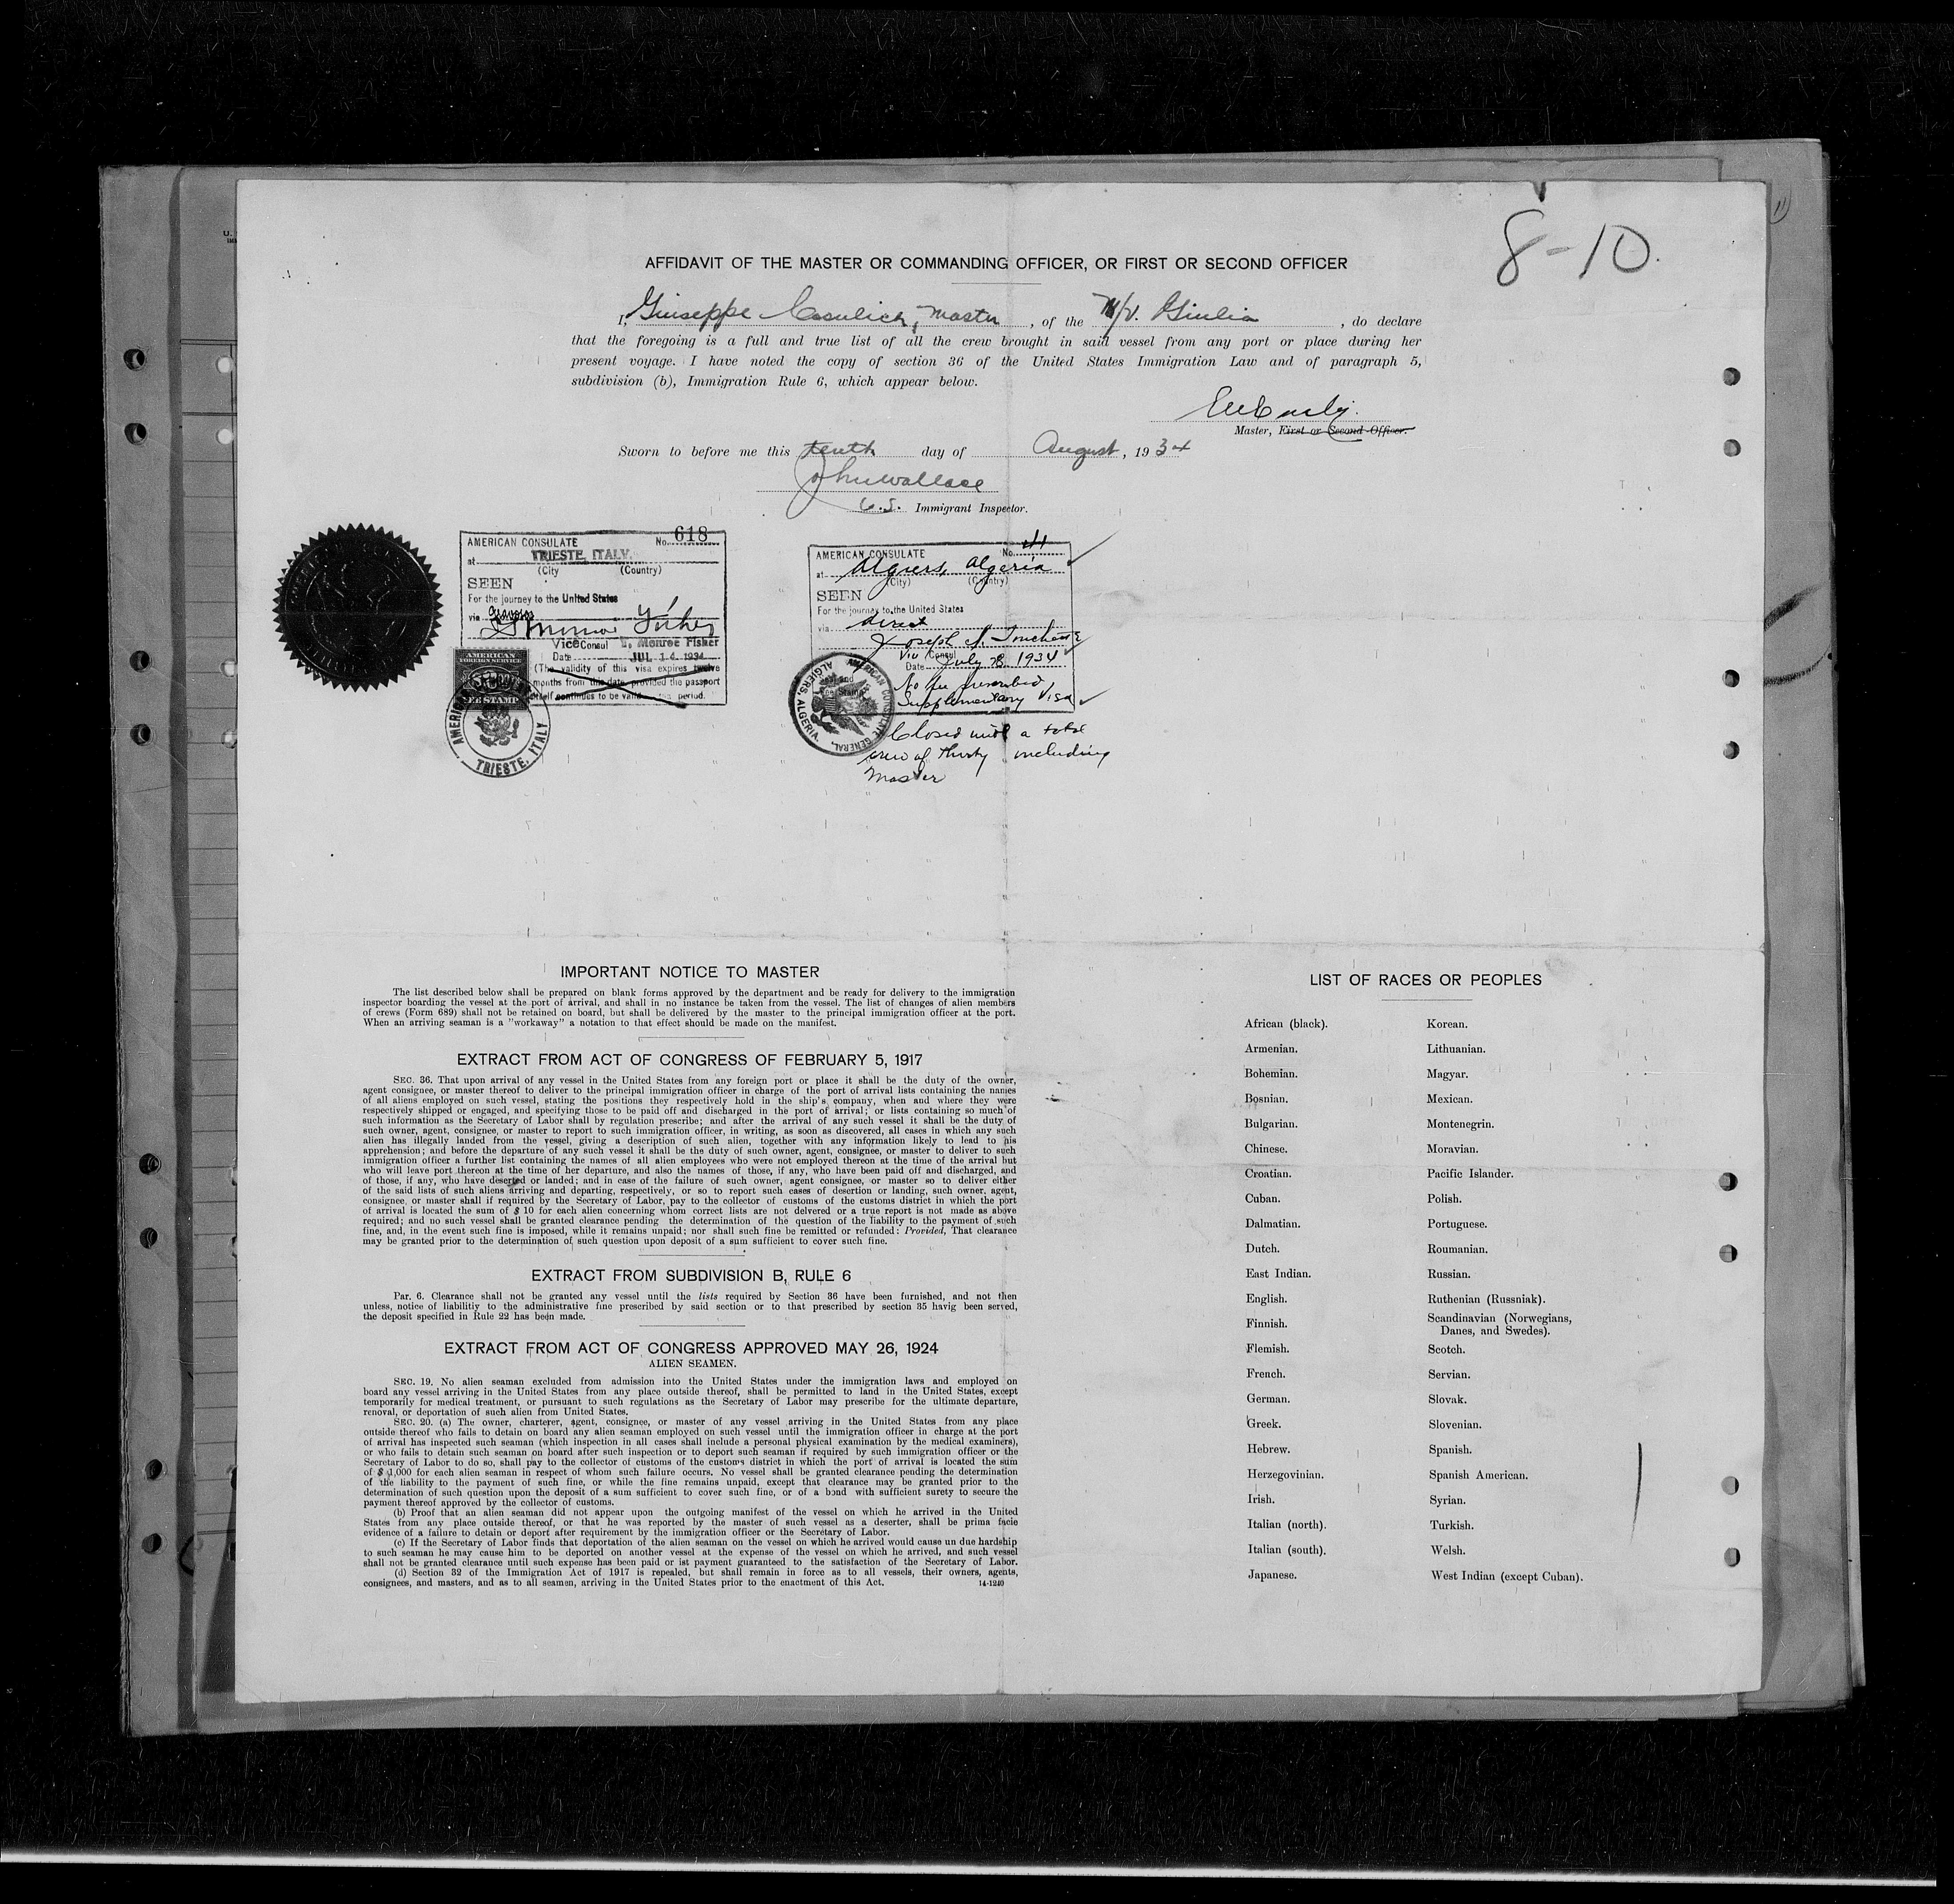 8-10.
AFFIDAVIT OF THE MASTER OR COMMANDING OFFICER, OR FIRST OR SECOND OFFICER
I, Giuseppe Cosulich, Master, of the M/V. Giulia, do declare
that the foregoing is a full and true list of all the crew brought in said vessel from any port or place during her
present voyage. I have noted the copy of section 36 of the United States Immigration Law and of paragraph 5,
subdivision (b), Immigration Rule 6, which appear below.
Master, First or Second Officer.
Sworn to before me this tenth day of August, 1934
John Wallace
U.S. Immigrant Inspector.
AMERICAN CONSULATE No. 618
at TRIESTE, ITALY.
(City (Country)
SEEN
For the journey to the United States
via
Vice Consul Monroe Fisher
Date JUL 14 1934
(The validity of this visa expires twelve
months from this date, provided the passport
itself continues to be valid period.
AMERICAN
FOREIGN SERVICE
FEE STAMP
TRIESTE, ITALY
AMERICAN CONSULATE No.
at Algiers, Algeria
(City) (Country)
SEEN
For the journey to the United States
via direct
Joseph I. Touchette
Vice Consul
Date July 28, 1934
No fee prescribed
Supplementary Visa
AMERICAN CONSULATE GENERAL
ALGIERS, ALGERIA.
Closed with a total
crew of thirty including
Master
IMPORTANT NOTICE TO MASTER
The list described below shall be prepared on blank forms approved by the department and be ready for delivery to the immigration
inspector boarding the vessel at the port of arrival, and shall in no instance be taken from the vessel. The list of changes of alien members
of crews (Form 689) shall not be retained on board, but shall be delivered by the master to the principal immigration officer at the port.
When an arriving seaman is a "workaway" a notation to that effect should be made on the manifest.
EXTRACT FROM ACT OF CONGRESS OF FEBRUARY 5, 1917
SEC. 36. That upon arrival of any vessel in the United States from any foreign port or place it shall be the duty of the owner,
agent consignee, or master thereof to deliver to the principal immigration officer in charge of the port of arrival lists containing the names
of all aliens employed on such vessel, stating the positions they respectively hold in the ship's company, when and where they were
respectively shipped or engaged, and specifying those to be paid off and discharged in the port of arrival; or lists containing so much of
such information as the Secretary of Labor shall by regulation prescribe; and after the arrival of any such vessel it shall be the duty of
such owner, agent, consignee, or master to report to such immigration officer, in writing, as soon as discovered, all cases in which any such
alien has illegally landed from the vessel, giving a description of such alien, together with any information likely to lead to his
apprehension; and before the departure of any such vessel it shall be the duty of such owner, agent, consignee, or master to deliver to such
immigration officer a further list containing the names of all alien employees who were not employed thereon at the time of the arrival but
who will leave port thereon at the time of her departure, and also the names of those, if any, who have been paid off and discharged, and
of those, if any, who have deserted or landed; and in case of the failure of such owner, agent consignee, or master so to deliver either
of the said lists of such aliens arriving and departing, respectively, or so to report such cases of desertion or landing, such owner, agent,
consignee, or master shall if required by the Secretary of Labor, pay to the collector of customs of the customs district in which the port
of arrival is located the sum of $ 10 for each alien concerning whom correct lists are not delivered or a true report is not made as above
required; and no such vessel shall be granted clearance pending the determination of the question of the liability to the payment of such
fine, and, in the event such fine is imposed, while it remains unpaid; nor shall such fine be remitted or refunded: Provided, That clearance
may be granted prior to the determination of such question upon deposit of a sum sufficient to cover such fine.
EXTRACT FROM SUBDIVISION B, RULE 6
Par. 6. Clearance shall not be granted any vessel until the lists required by Section 36 have been furnished, and not then
unless, notice of liability to the administrative fine prescribed by said section or to that prescribed by section 35 havig been served,
the deposit specified in Rule 22 has been made.
EXTRACT FROM ACT OF CONGRESS APPROVED MAY 26, 1924
ALIEN SEAMEN.
SEC. 19. No alien seaman excluded from admission into the United States under the immigration laws and employed on
board any vessel arriving in the United States from any place outside thereof, shall be permitted to land in the United States, except
temporarily for medical treatment, or pursuant to such regulations as the Secretary of Labor may prescribe for the ultimate departure,
renoval, or deportation of such alien from United States.
SEC. 20. (a) The owner, charterer, agent, consignee, or master of any vessel arriving in the United States from any place
outside thereof who fails to detain on board any alien seaman employed on such vessel until the immigration officer in charge at the port
of arrival has inspected such seaman (which inspection in all cases shall include a personal physical examination by the medical examiners),
or who fails to detain such seaman on board after such inspection or to deport such seaman if required by such immigration officer or the
Secretary of Labor to do so, shall pay to the collector of customs of the customs district in which the port of arrival is located the sum
of $ 1,000 for each alien seaman in respect of whom such failure occurs. No vessel shall be granted clearance pending the determination
of the liability to the payment of such fine, or while the fine remains unpaid, except that clearance may be granted prior to the
determination of such question upon the deposit of a sum sufficient to cover such fine, or of a bond with sufficient surety to secure the
payment thereof approved by the collector of customs.
(b) Proof that an alien seaman did not appear upon the outgoing manifest of the vessel on which he arrived in the United
States from any place outside thereof, or that he was reported by the master of such vessel as a deserter, shall be prima facie
evidence of a failure to detain or deport after requirement by the immigration officer or the Secretary of Labor.
(c) If the Secretary of Labor finds that deportation of the alien seaman on the vessel on which he arrived would cause un due hardship
to such seaman he may cause him to be deported on another vessel at the expense of the vessel on which he arrived, and such vessel
shall not be granted clearance until such expense has been paid or ist payment guaranteed to the satisfaction of the Secretary of Labor.
(d) Section 32 of the Immigration Act of 1917 is repealed, but shall remain in force as to all vessels, their owners, agents,
consignees, and masters, and as to all seamen, arriving in the United States prior to the enactment of this Act. 14-1240
LIST OF RACES OR PEOPLES
African (black). Korean.
Armenian. Lithuanian.
Bohemian. Magyar.
Bosnian. Mexican.
Bulgarian. Montenegrin.
Chinese. Moravian.
Croatian. Pacific Islander.
Cuban. Polish.
Dalmatian. Portuguese.
Dutch. Roumanian.
East Indian. Russian.
English. Ruthenian (Russniak).
Finnish. Scandinavian (Norwegians,
Danes, and Swedes).
Flemish. Scotch.
French. Servian.
German. Slovak.
Greek. Slovenian.
Hebrew. Spanish.
Herzegovinian. Spanish American.
Irish. Syrian.
Italian (north). Turkish.
Italian (south). Welsh.
Japanese. West Indian (except Cuban).